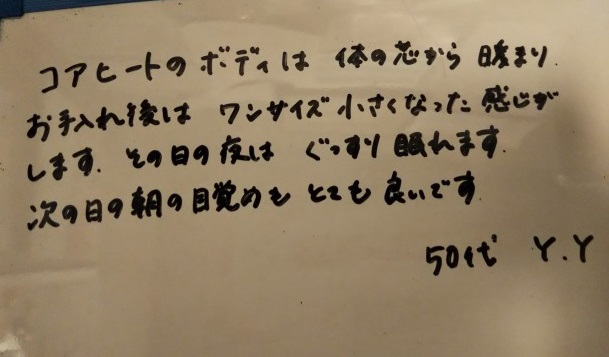 コアヒートのボディは 体の芯から 暖まり
お手入れ後は ワンサイズ小さくなった感じが
します. その日の夜は ぐっすり眠れます.
次の日の朝の目覚めも とても良いです
50代 Y.Y